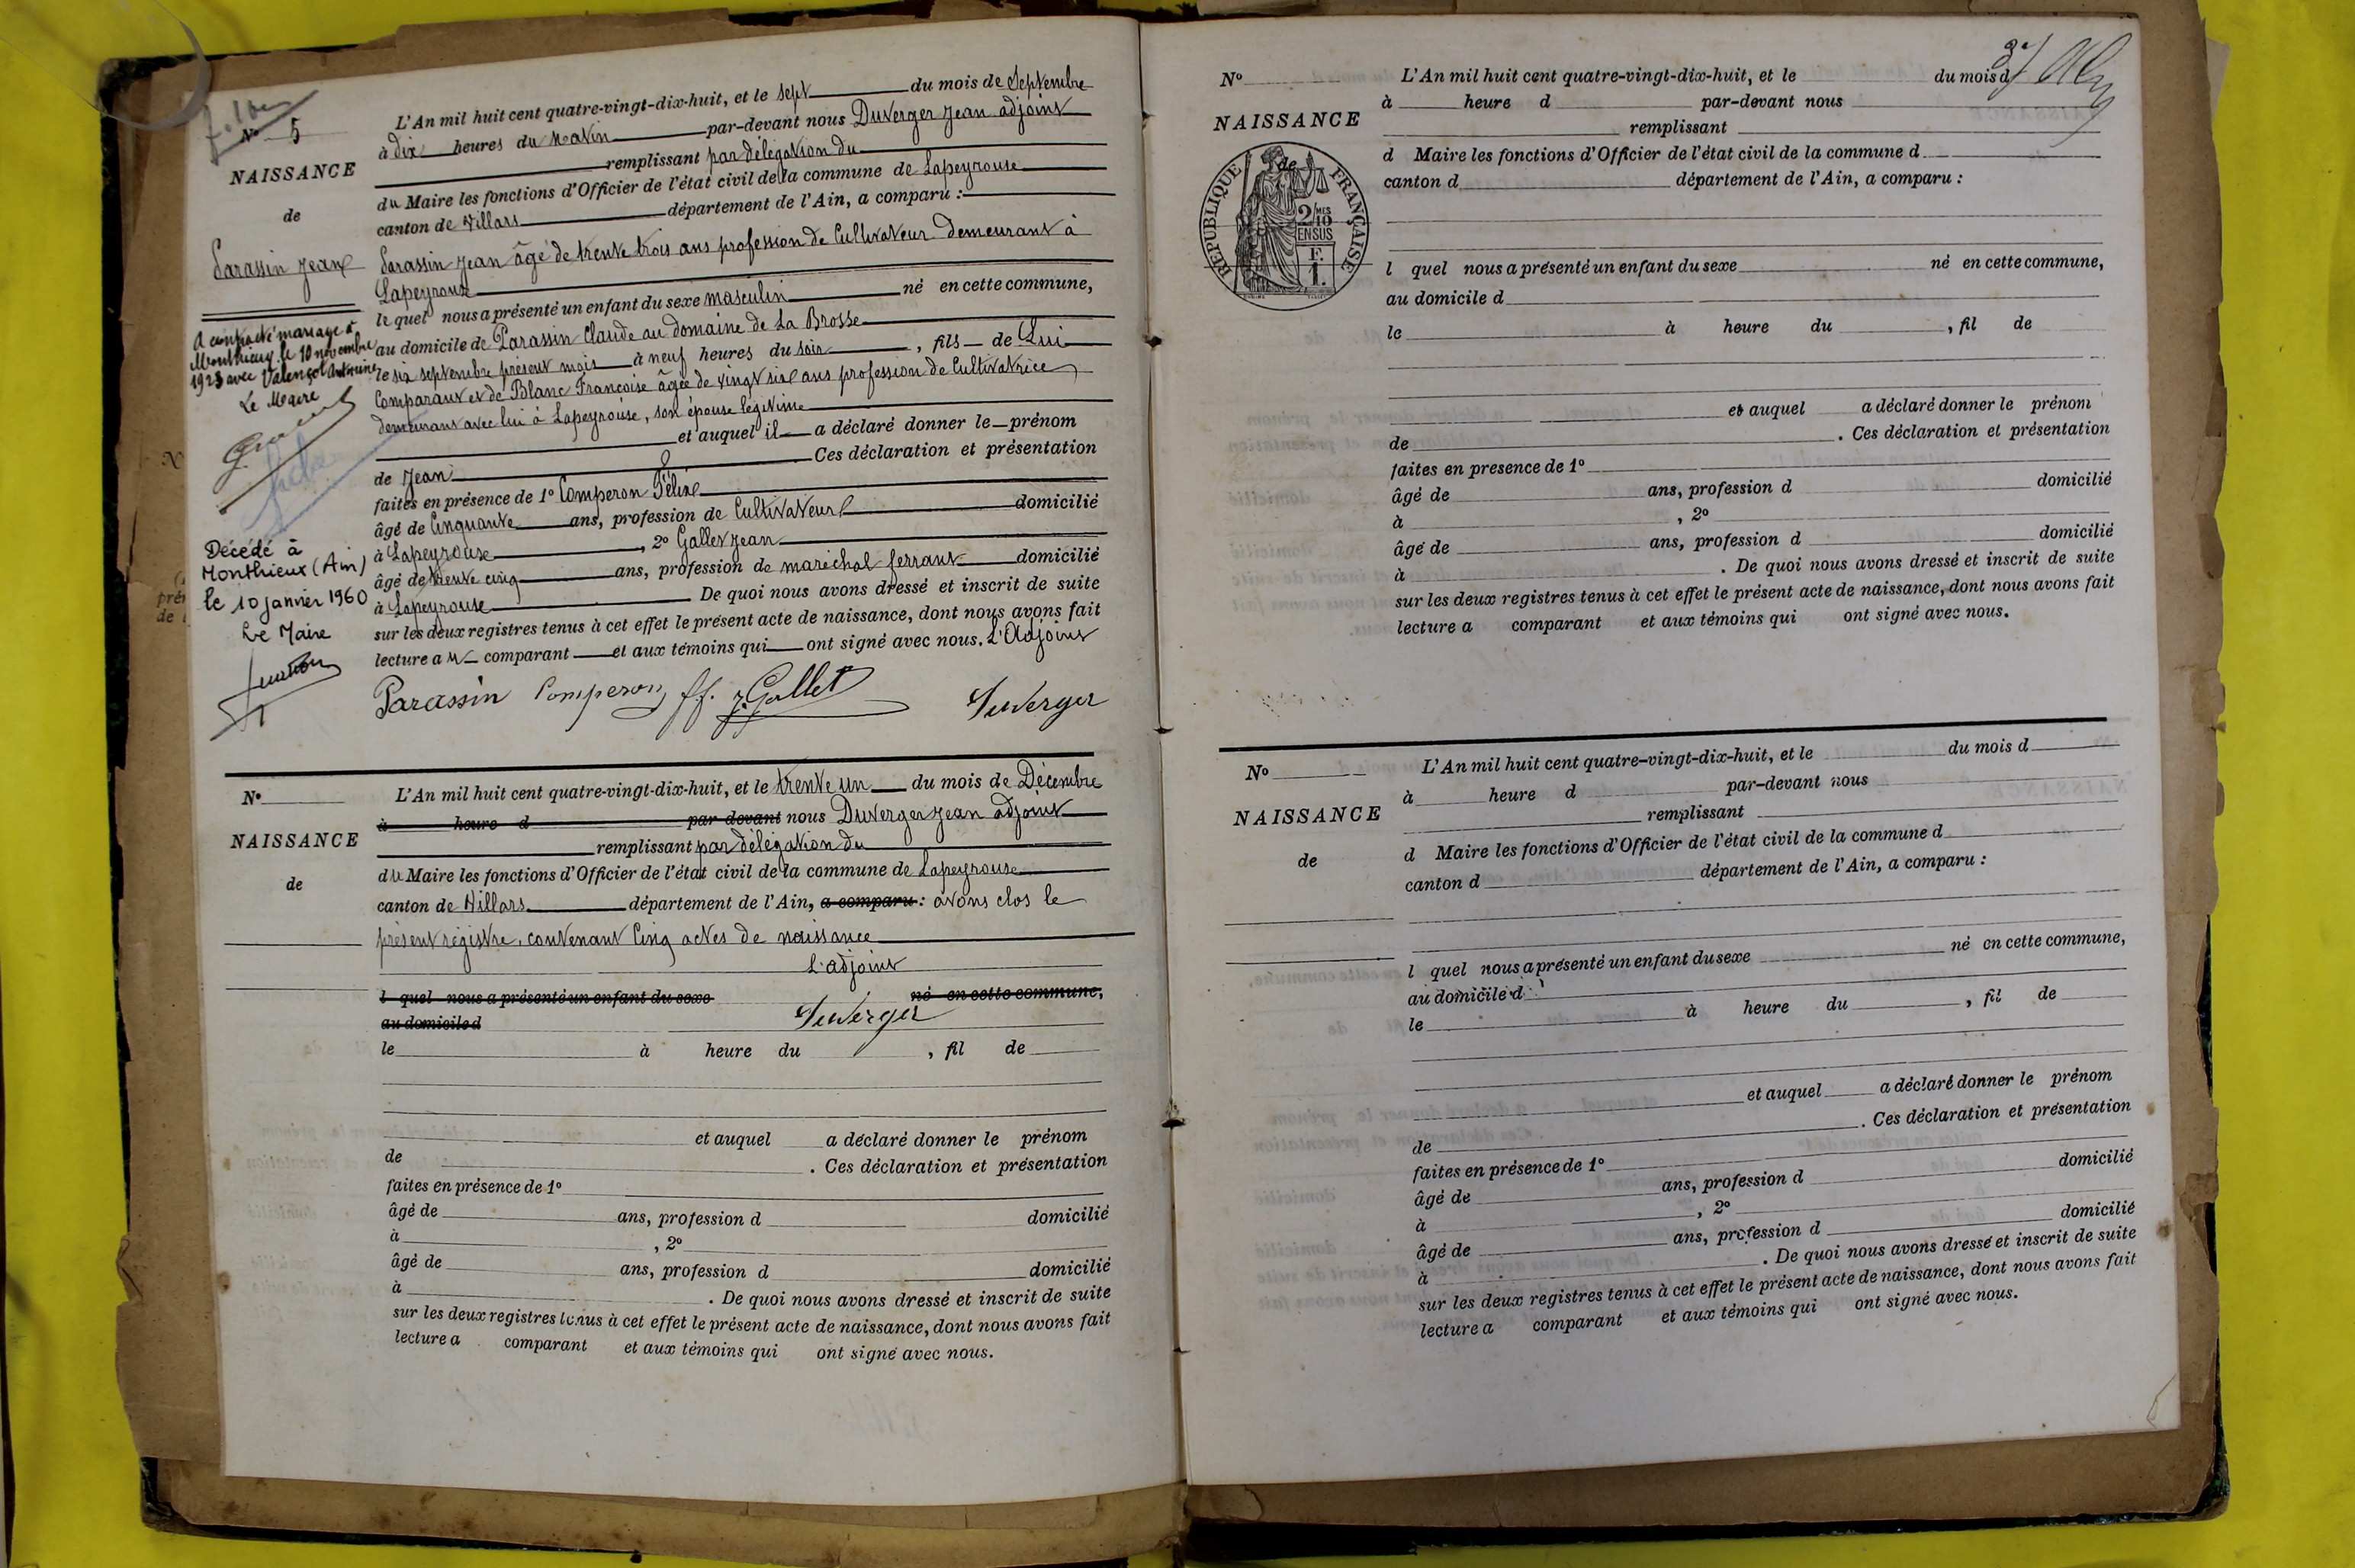 N° 5
NAISSANCE
de
Parassin Jean
A contracté mariage à
Monthieux le 10 novembre
1923 avec Valençot Antoinine
Le Maire
Décédé à
Monthieux (Ain)
le 10 janvier 1960
Le Maire
L'An mil huit cent quatre-vingt-dix-huit, et le sept du mois de Septembre
à dix heures du matin par-devant nous Duverger Jean adjoint
remplissant par délégation du
du Maire les fonctions d'Officier de l'état civil de la commune de Lapeyrouse
canton de Villars département de l'Ain, a comparu :
Parassin Jean âgé de trente trois ans profession de Cultivateur demeurant à
Lapeyrouse
lequel nous a présenté un enfant du sexe masculin né en cette commune,
au domicile de Parassin Claude au domaine de La Brosse
le six septembre présent mois à neuf heures du soir, fils de Lui
Comparant et de Blanc Francoise âgée de vingt six ans profession de Cultivatrice
demeurant avec lui à Lapeyrouse, son épouse légitime
et auquel il a déclaré donner le prénom
de Jean Ces déclaration et présentation
faites en présence de 1° Comperon Félix
âgé de Cinquante ans, profession de Cultivateur domicilié
à Lapeyrouse, 2° Gallet Jean
âgé de trente cinq ans, profession de maréchal ferrant domicilié
à Lapeyrouse De quoi nous avons dressé et inscrit de suite
sur les deux registres tenus à cet effet le présent acte de naissance, dont nous avons fait
lecture au comparant et aux témoins qui ont signé avec nous. L'Adjoint
Parassin Comperon ff. J. Gallet Duverger
N°
NAISSANCE
de
L'An mil huit cent quatre-vingt-dix-huit, et le trente un du mois de Décembre
à heure d par devant nous Duverger Jean adjoint
remplissant par délégation du
du Maire les fonctions d'Officier de l'état civil de la commune de Lapeyrouse
canton de Villars département de l'Ain, a comparu : avons clos le
présent régistre, contenant Cinq actes de naissance
L'adjoint
l quel nous a présenté un enfant du sexe né en cette commune,
au domicile d Duverger
le à heure du , fil de
et auquel a déclaré donner le prénom
de . Ces déclaration et présentation
faites en présence de 1°
âgé de ans, profession d domicilié
à , 2°
âgé de ans, profession d domicilié
à . De quoi nous avons dressé et inscrit de suite
sur les deux registres tenus à cet effet le présent acte de naissance, dont nous avons fait
lecture a comparant et aux témoins qui ont signé avec nous.
N°
NAISSANCE
de
REPUBLIQUE FRANÇAISE
2/10 MES
EN SUS
F.
1.
L'An mil huit cent quatre-vingt-dix-huit, et le du mois d
à heure d par-devant nous
remplissant
d Maire les fonctions d'Officier de l'état civil de la commune d
canton d département de l'Ain, a comparu :
l quel nous a présenté un enfant du sexe né en cette commune,
au domicile d
le à heure du , fil de
et auquel a déclaré donner le prénom
de . Ces déclaration et présentation
faites en presence de 1°
âgé de ans, profession d domicilié
à , 2°
âgé de ans, profession d domicilié
à . De quoi nous avons dressé et inscrit de suite
sur les deux registres tenus à cet effet le présent acte de naissance, dont nous avons fait
lecture a comparant et aux témoins qui ont signé avec nous.
N°
NAISSANCE
de
L'An mil huit cent quatre-vingt-dix-huit, et le du mois d
à heure d par-devant nous
remplissant
d Maire les fonctions d'Officier de l'état civil de la commune d
canton d département de l'Ain, a comparu :
l quel nous a présenté un enfant du sexe né en cette commune,
au domicile d
le à heure du , fil de
et auquel a déclaré donner le prénom
de . Ces déclaration et présentation
faites en présence de 1°
âgé de ans, profession d domicilié
à , 2°
âgé de ans, profession d domicilié
à . De quoi nous avons dressé et inscrit de suite
sur les deux registres tenus à cet effet le présent acte de naissance, dont nous avons fait
lecture a comparant et aux témoins qui ont signé avec nous.